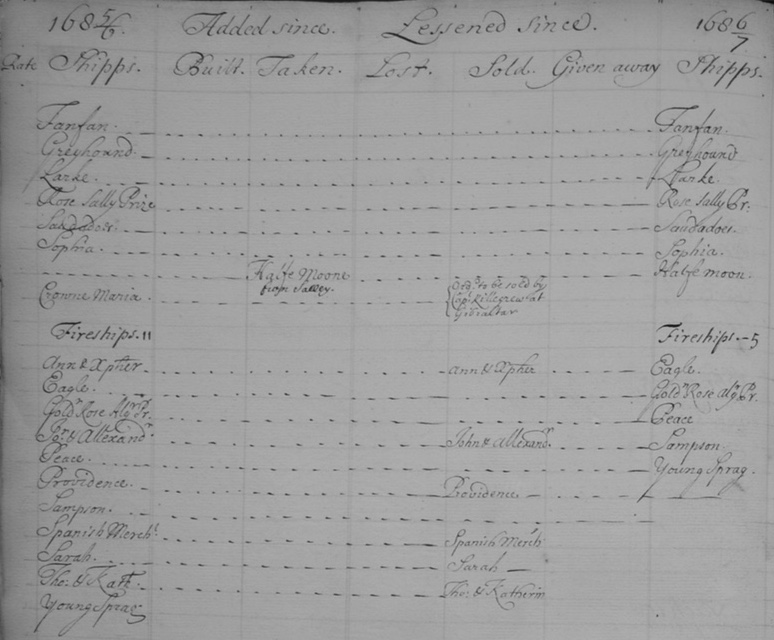 168 5/6. Added since. Lessened since. 168 6/7
Rate Shipps. Built. Taken. Lost. Sold. Given away Shipps.
Fanfan. Fanfan.
Greyhound. Greyhound
Larke. Larke.
Rose Sally Prize Rose Sally Pr.
Saudadoes. Saudadoes.
Sophia. Sophia.
Halfe Moone Halfe moon.
from Salley.
Crowne Maria. Ord.d to be sold by
Cap.t Killegrew at
Gibraltar
Fireships. 11 Fireships.-5
Ann & Xpher. Ann & Xpher Eagle.
Eagle. Gold.n Rose Alg.r Pr.
Gold.n Rose Alg.r Pr. Peace
Jo.n & Allexand.r John & Allexand.r Sampson.
Peace. Young Sprag.
Providence. Providence
Sampson.
Spanish Merch.t Spanish Merch.t
Sarah. Sarah
Tho: & Kath. Tho: & Katherin
Young Sprag